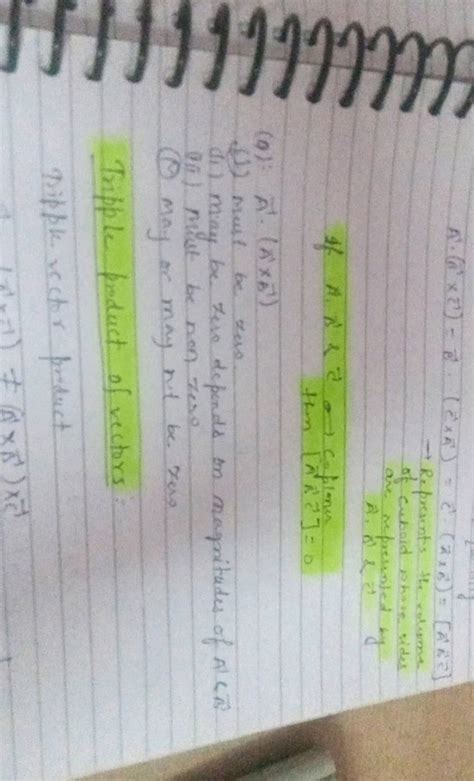 A⃗.(B⃗ × C⃗) = B⃗ . (C⃗ × A⃗) = C⃗ . (A⃗ × B⃗) = [A⃗ B⃗ C⃗]
→ Represents the volume
of cuboid whose sides
are represented by
A⃗, B⃗ & C⃗
If A⃗, B⃗ & C⃗ → Coplaner
then [A⃗ B⃗ C⃗] = 0
(Q): A⃗. (A⃗ × B⃗)
(i) must be zero
(ii) may be zero depends on magnitudes of A⃗ & B⃗
(iii) must be non zero
(iv) may or may nt be zero
Tripple product of vectors:
Tripple vector product
(B⃗ × C⃗) ≠ (A⃗ × B⃗) × C⃗